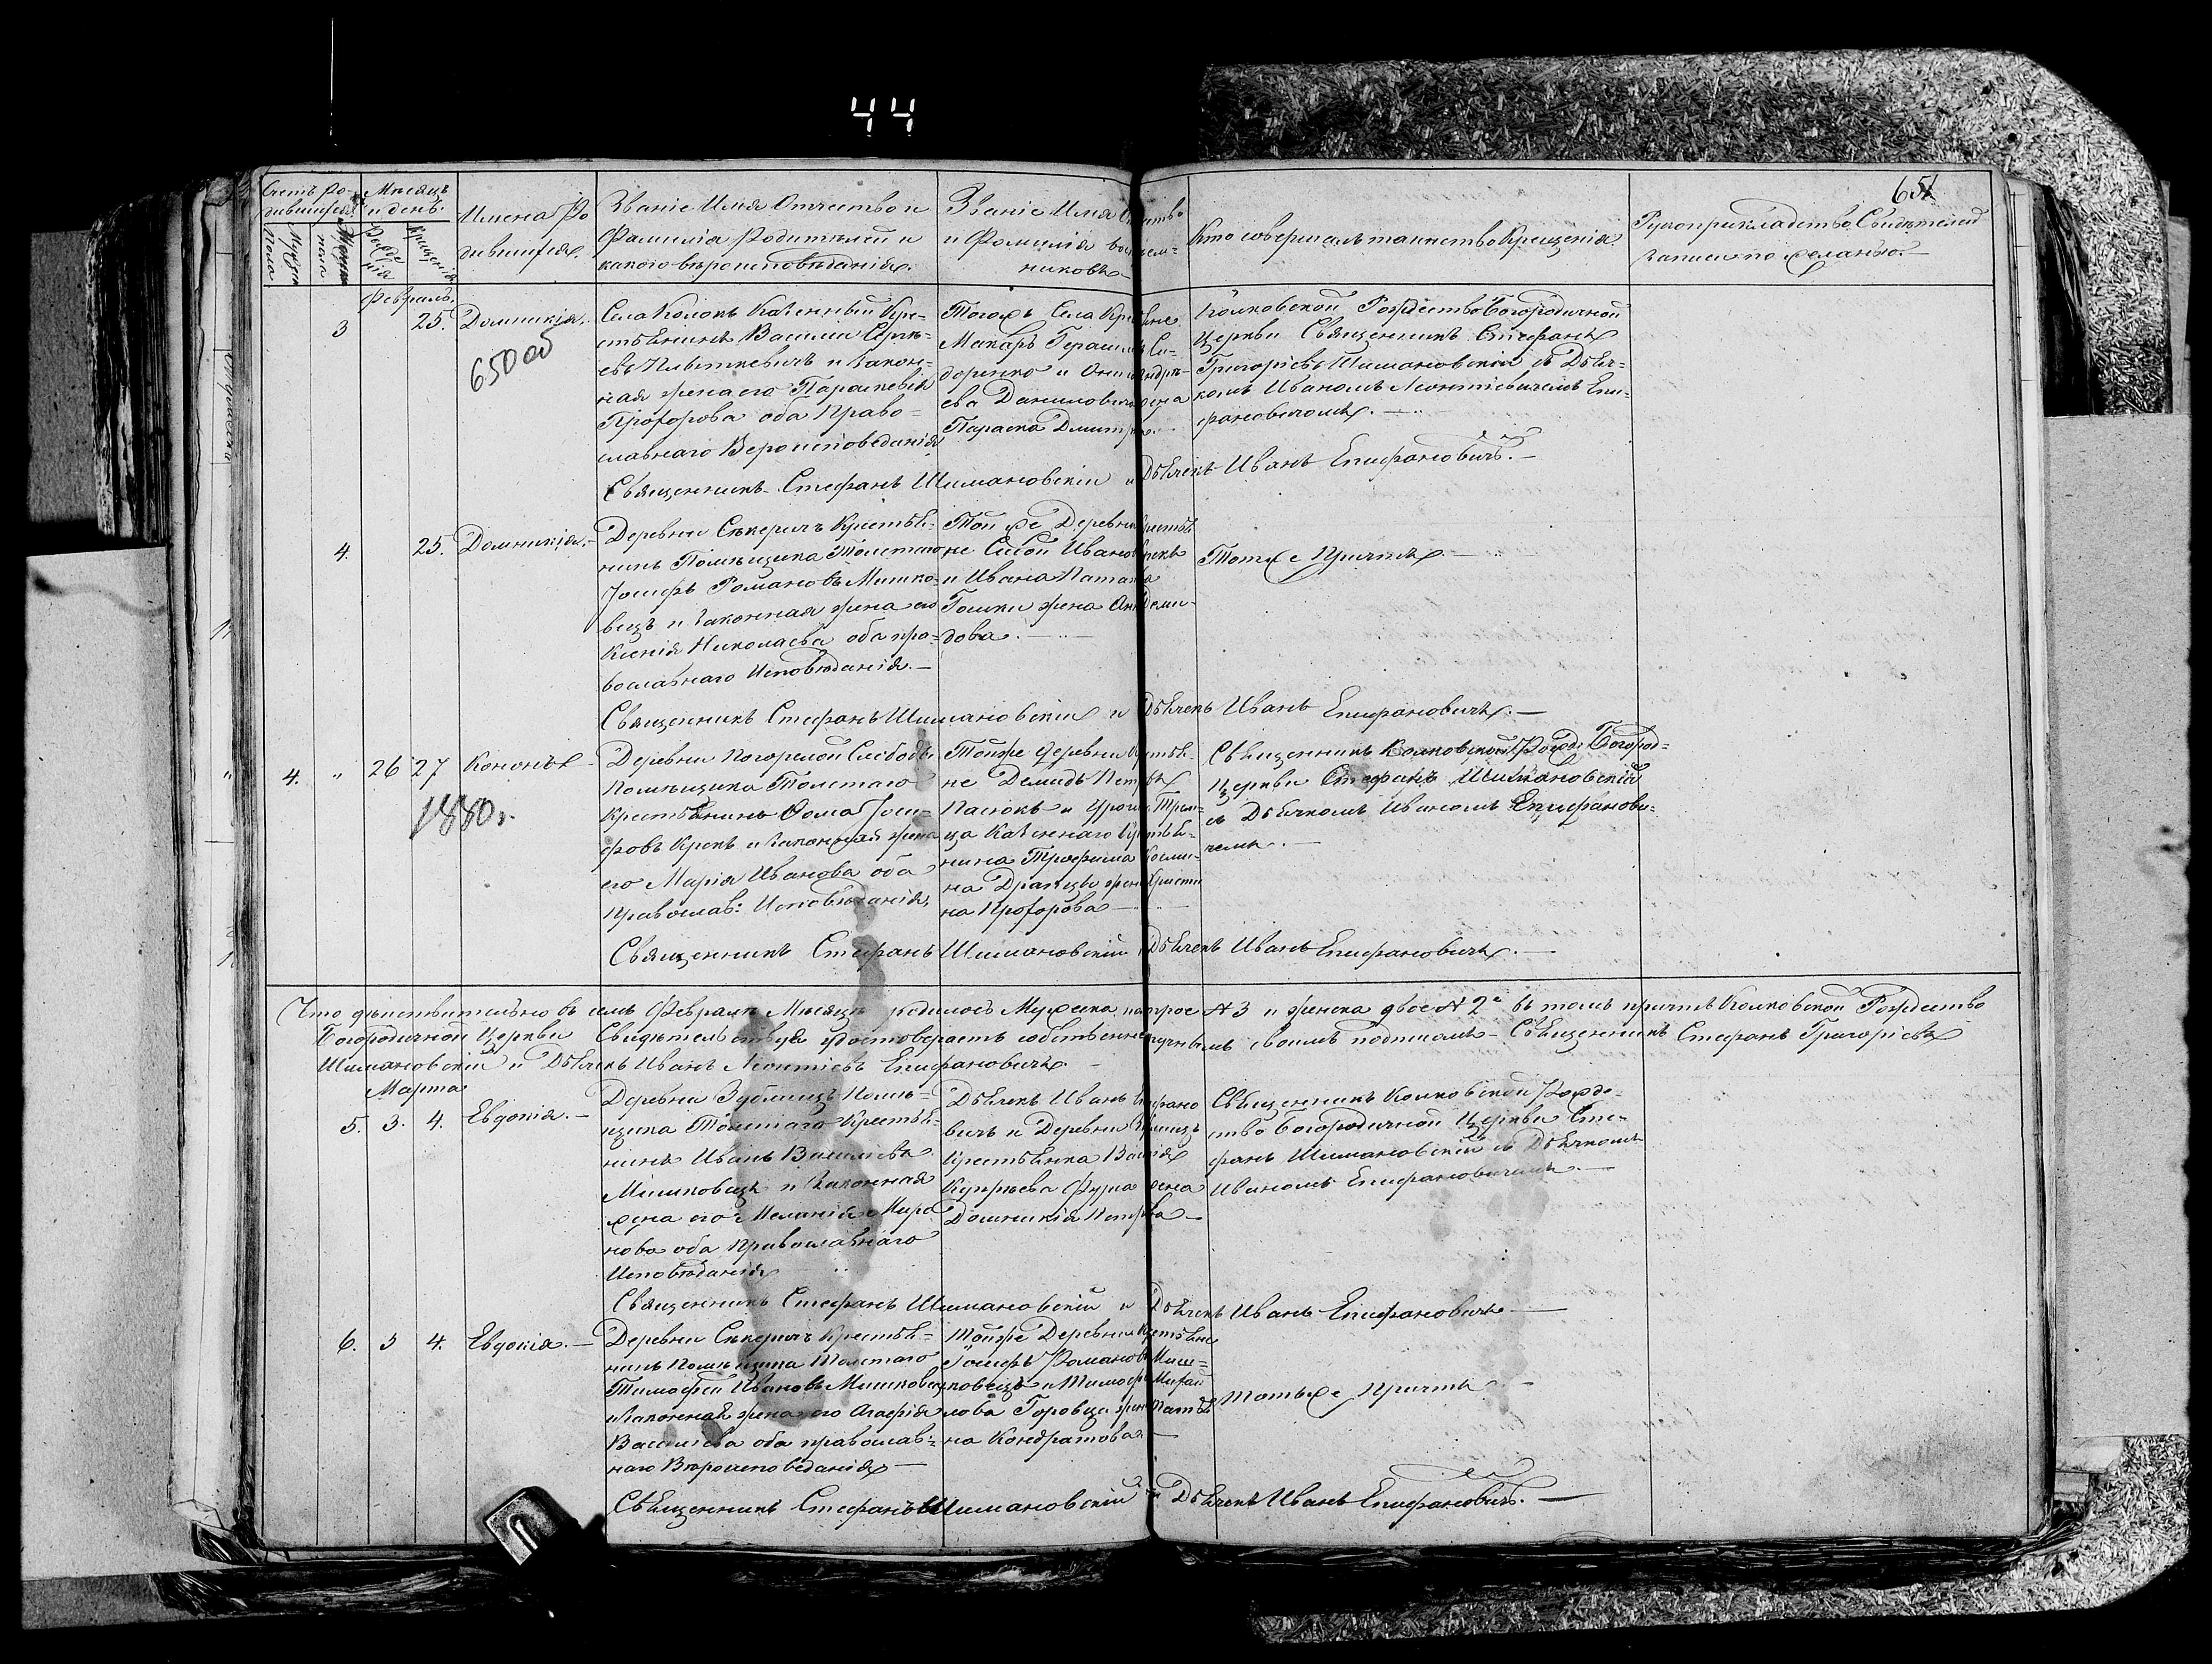 44
651
Счетъ Ро-
дившихся
Мѣсяцъ
и день.
Мужеск
пола
Женск
пола
Рожде
нія
Крещенія
Имена Ро
дившихся.
Званіе Имя Отчество и
Фамилія Родителей и
какого вѣроисповѣданія.
Званіе Имя Отчество
и Фамилія воспріем-
никовъ
Кто совершалъ таинство Крещенія
Рукоприкладство Свидѣтелей
записи по желанію.
Февраль.
3
25.
Домникія.
650 об
Села Колокъ Казенный Кре-
стьянинъ Василій Сергѣ-
евъ и закон-
ная жена его Параскевія
Прохорова оба Право-
славнаго Вероисповеданія
Тогожъ Села Крестьяне
Макаръ Герасимъ Си-
доренко и
ева Данилови жена
Параска Дмитр
Колковской Рождество Богородичной
Церкви Священникъ Стефанъ
Григоріевъ Шимановскій съ Дьяч-
комъ Иваномъ Леонтіевичемъ Епи-
фановичомъ.
Священникъ Стефанъ Шимановскій и Дьячекъ Иванъ Епифановичъ.
4.
25.
Домникія.
Деревни Секеричъ Крестья-
нинъ Помѣщика Толстаго
Іосифъ Романовъ Мишко-
вецъ и законная жена его
Ксенія Николаева оба пра-
вославнаго Исповѣданія.
Той же Деревни Крестья
не Сисой Иванов
и Ивана
жена Анн Деми-
дова.
Тотже Причтъ.
Священникъ Стефанъ Шимановскій и Дьячекъ Иванъ Епифановичъ.
4.
"
26
27
Кононъ
1880 г.
Деревни Погорелой Слободы
Помѣщика Толстаго
Крестьянинъ Фома Іоси-
фовъ Крекъ и законная жена
его Марія Иванова оба
Православ: Исповѣданія,
Тойже Деревни Крестья-
не Демидъ Петровъ
Пасюкъ и Уроч Трои-
ца Казеннаго Крестья-
нина Трофима Косми-
на жена Христи
на Прохорова
Священникъ Колковской Рожд: Богород-
Церкви Стефанъ Шимановскій
съ Дьячкомъ Иваномъ Епифанови-
чемъ.
Священникъ Стефанъ Шимановскій и Дьячекъ Иванъ Епифановичъ.
Что дѣйствительно въ семъ Февралѣ Мѣсяцѣ родилось Мужеска трое № 3 и женска двое № 2е въ томъ причтъ Колковской Рождество
Богородичной Церкви Свидѣтельствуя удостоверяетъ собственноручнымъ своимъ подписомъ Священникъ Стефанъ Григоріевъ
Шимановскій и Дьячекъ Иванъ Леонтіевъ Епифановичъ
Марта
5.
3.
4.
Евдокія.
Деревни Помѣ-
щика Толстаго Крестья-
нинъ Иванъ Василіевъ
Мишковецъ и законная
жена его Меланія Миро
нова оба Православнаго
Исповѣданія
Дьячекъ Иванъ Епифано
вичъ и Деревни
Крестьянка Васи
жена
Домникія Петрова
Священникъ Колковской Рожде-
ство Богородичной Церкви Сте-
фанъ Шимановскій съ Дьячкомъ
Иваномъ Епифановичемъ.
Священникъ Стефанъ Шимановскій и Дьячекъ Иванъ Епифановичъ
6.
3
4.
Евдокія.
Деревни Секеричъ Крестья-
нинъ Помѣщика Толстаго
Тимофей Ивановъ Мишковец
и законная жена его Агафія
Василіева оба православ-
наго Вѣроисповеданія
Тойже Деревни Крестьяне
Іосифъ Романовъ Миш-
ковецъ и Тимофе Михай
лова Горовца жена Татья
на Кондратова
Тотъже Причтъ
Священникъ Стефанъ Шимановскій и Дьячекъ Иванъ Епифановичъ.